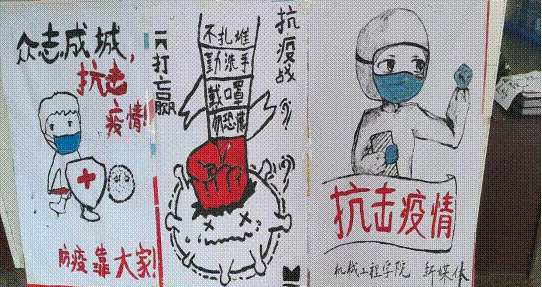 众志成城,
抗击
疫情!
防疫靠大家!
不扎堆
勤洗手
戴口罩
抗疫战
抗击疫情
机械工程学院 新媒体